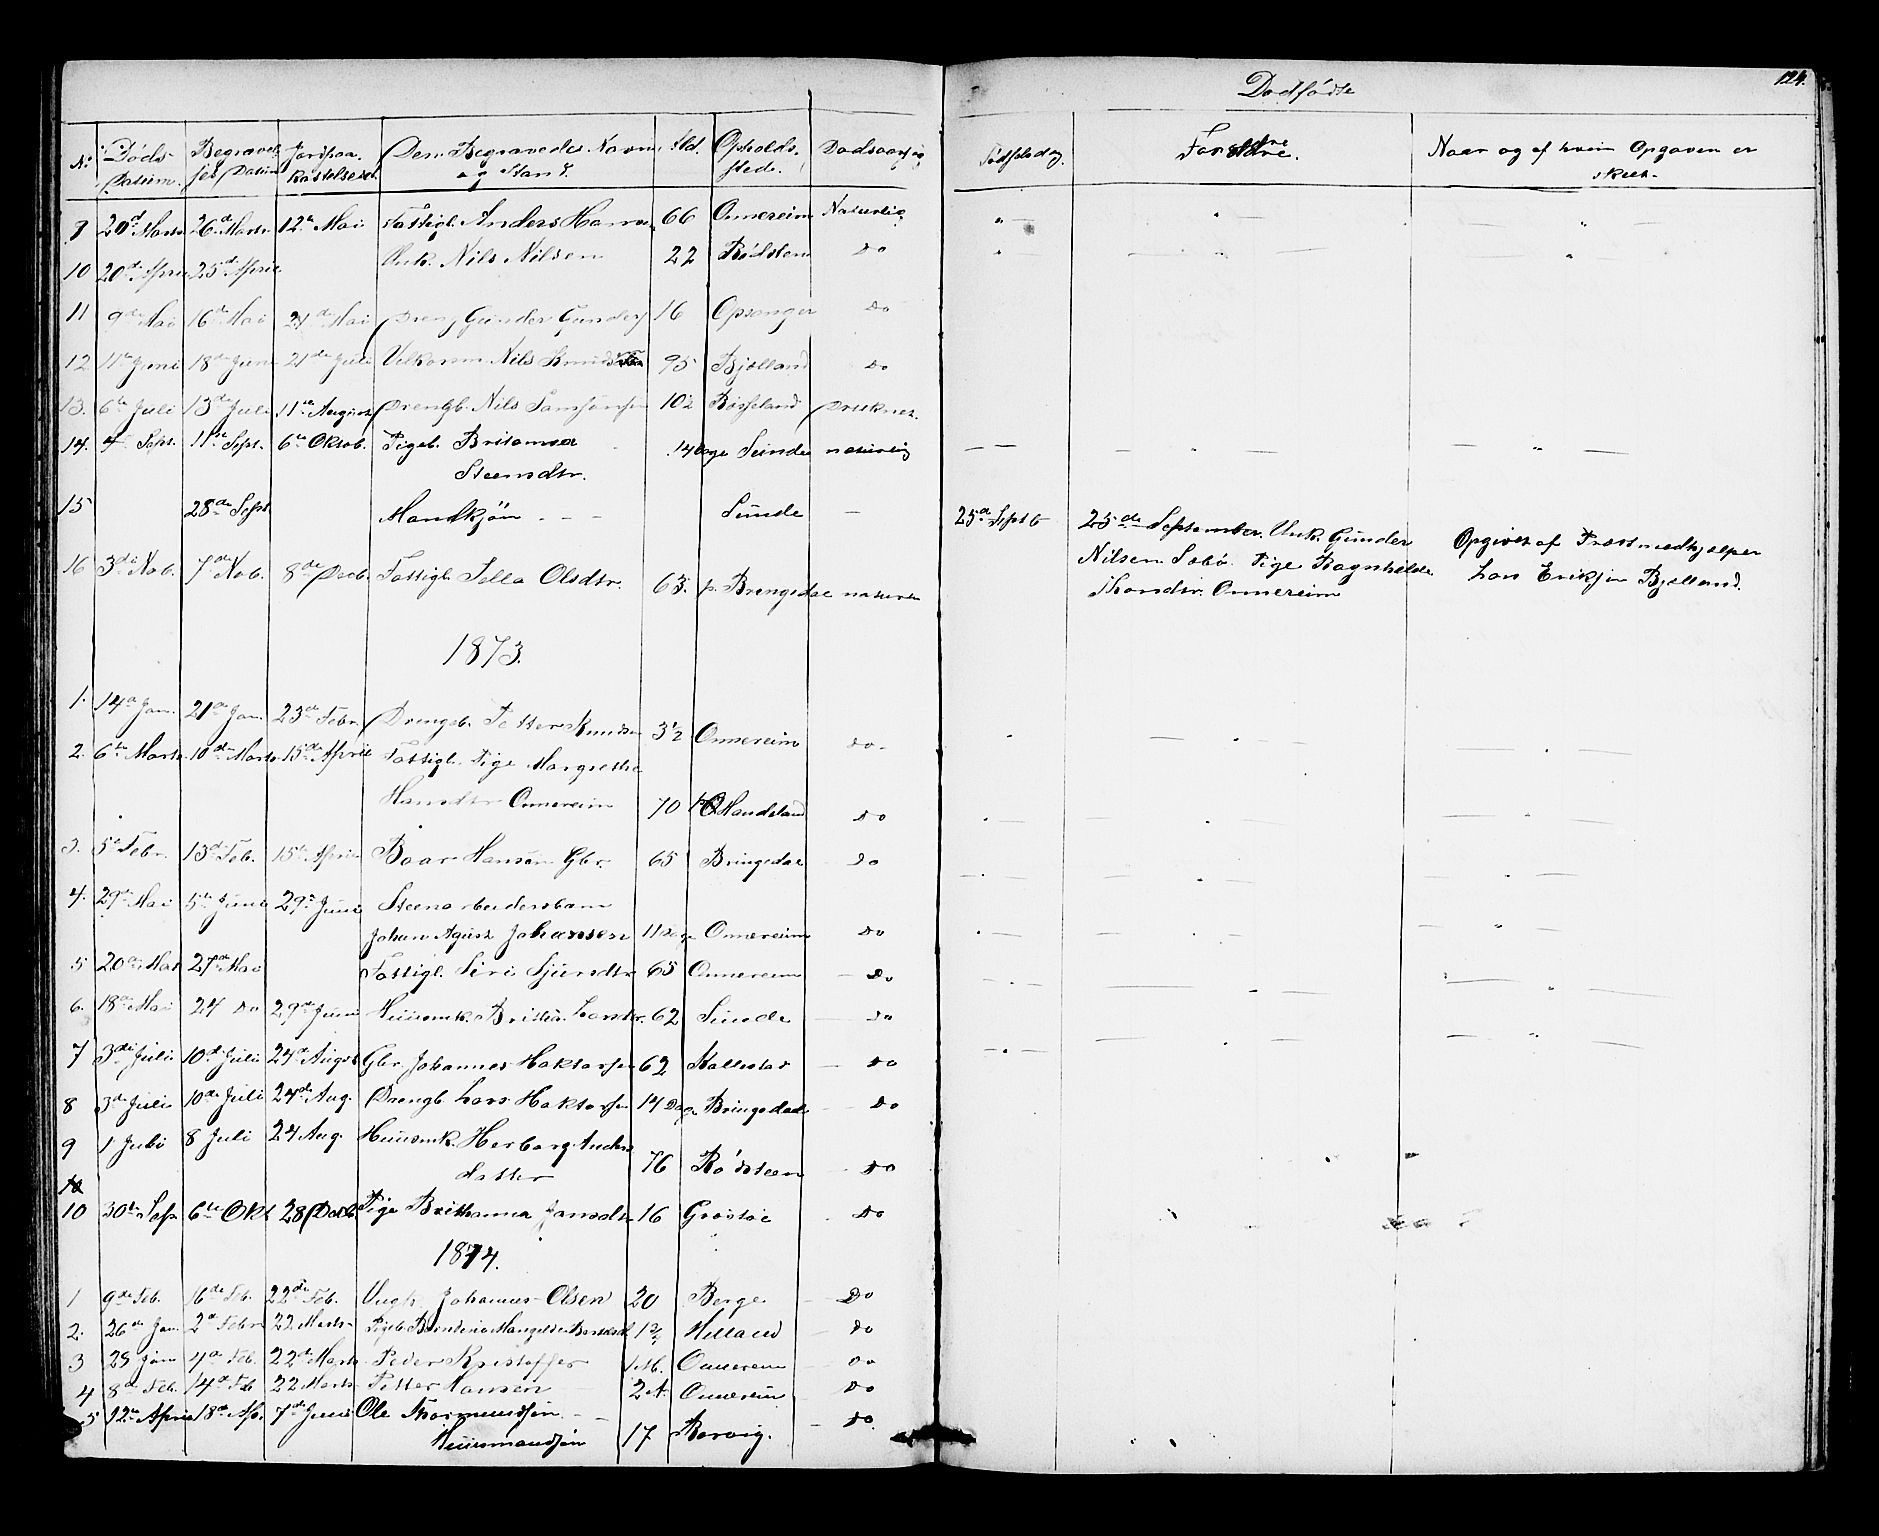 Dødfødte
124.
No. Døds Datum. Begravelses Datum Jordpaakastelse Den Begravedes Navn og Stand. Ald. Opholdssted. Dødsaarsag Fødselsdag. Forældre. Naar og af hvem Opgaven er skeet.
9 20de Marts 26de Marts 12te Mai Fattigl. Anders 66 Onnereim Naturlig
10 20de April 25de April Unk. Nils Nilsen 22 Rødsteen Do
11 9de Mai 16de Mai 21de Mai Dreng Gunder Gunders 16 Opsanger Do
12 11te Juni 18de Juni 21de Juli Nils 95 Bjelland Do
13. 6te Juli 13de Juli 11te August Drengb. Nils Samsonsen 10½ Druknet.
14. 4 Sept. 11te Sept. 6te Oktob. Pigeb. Britamia 14 Dage Sunde naturlig
Steensdtr.
15 28de Sept Mandkjøn - - - Sunde — 25de Sept 25de September. Unk. Gunder
Nilsen Sebø. Pige Ragnhilde
Onnereim
Opgivet af Præstmedhjælper
Lars Eriksen Bjelland.
16 3die Nob. 7de Nob. 8de Decb. Fattigl. Sella Olsdtr. 63. p. Bringedal naturlig
1873.
1. 14de Jan. 21de Jan. 23de Febr. Drengb. Petter Knudsen 3½ Onnereim Do.
2. 6te Marts 10de Marts 15de April Fattigl. Pige Margrethe
Hansdtr Onnereim 70 Handeland Do
3. 5te Febr. 13de Feb. 15de April Baar Hansen Gbr. 65 Bringedal Do
4. 29de Mai 5te Juni 29de Juni Steenarbeidersbarn
Johan Agust Johansen 11 Dage Onnereim Do
5 20de Mai 27de Mai Fattigl. Siri Sjursdtr 65 Onnereim — Do
6. 18de Mai 24 Do 29de Juni Huusmk. Britha Larsdtr. 62 Sunde — Do
7 3die Juli 10de Juli 24de August Gbr. Johannes Haktorsen 62 — Do
8 3die Juli 10de Juli 24de Aug. Drengb. Lars Haktorsen 14 Dage Bringedal — Do
9 1 Juli 8 Juli 24 Aug. Huusmk. Herborg Anders
datter 76 Rødsteen - Do
10 30te Sep. 6te Okt 28 Decb. Pige Brithanna Jansdtr 16 - Do
1874.
1 9de Feb. 16de Feb. 22de Feb. Ungk. Johannes Olsen 20 Berge — Do
2. 26de Jan. 2de Febr 22 Marts Pigeb. 1¾ Helland — Do
3 28 Jan 4de Feb. 22de Marts Peder Kristoffer 1 M. Onnereim — Do
4 8de Feb. 14de Feb 22 Marts Petter Hansen 2 A. Onnereim — Do
5 12te April 18de Ap. 7de Juni Ole Thormundsen. — —
Huusmandsøn 17 Borvig. — Do